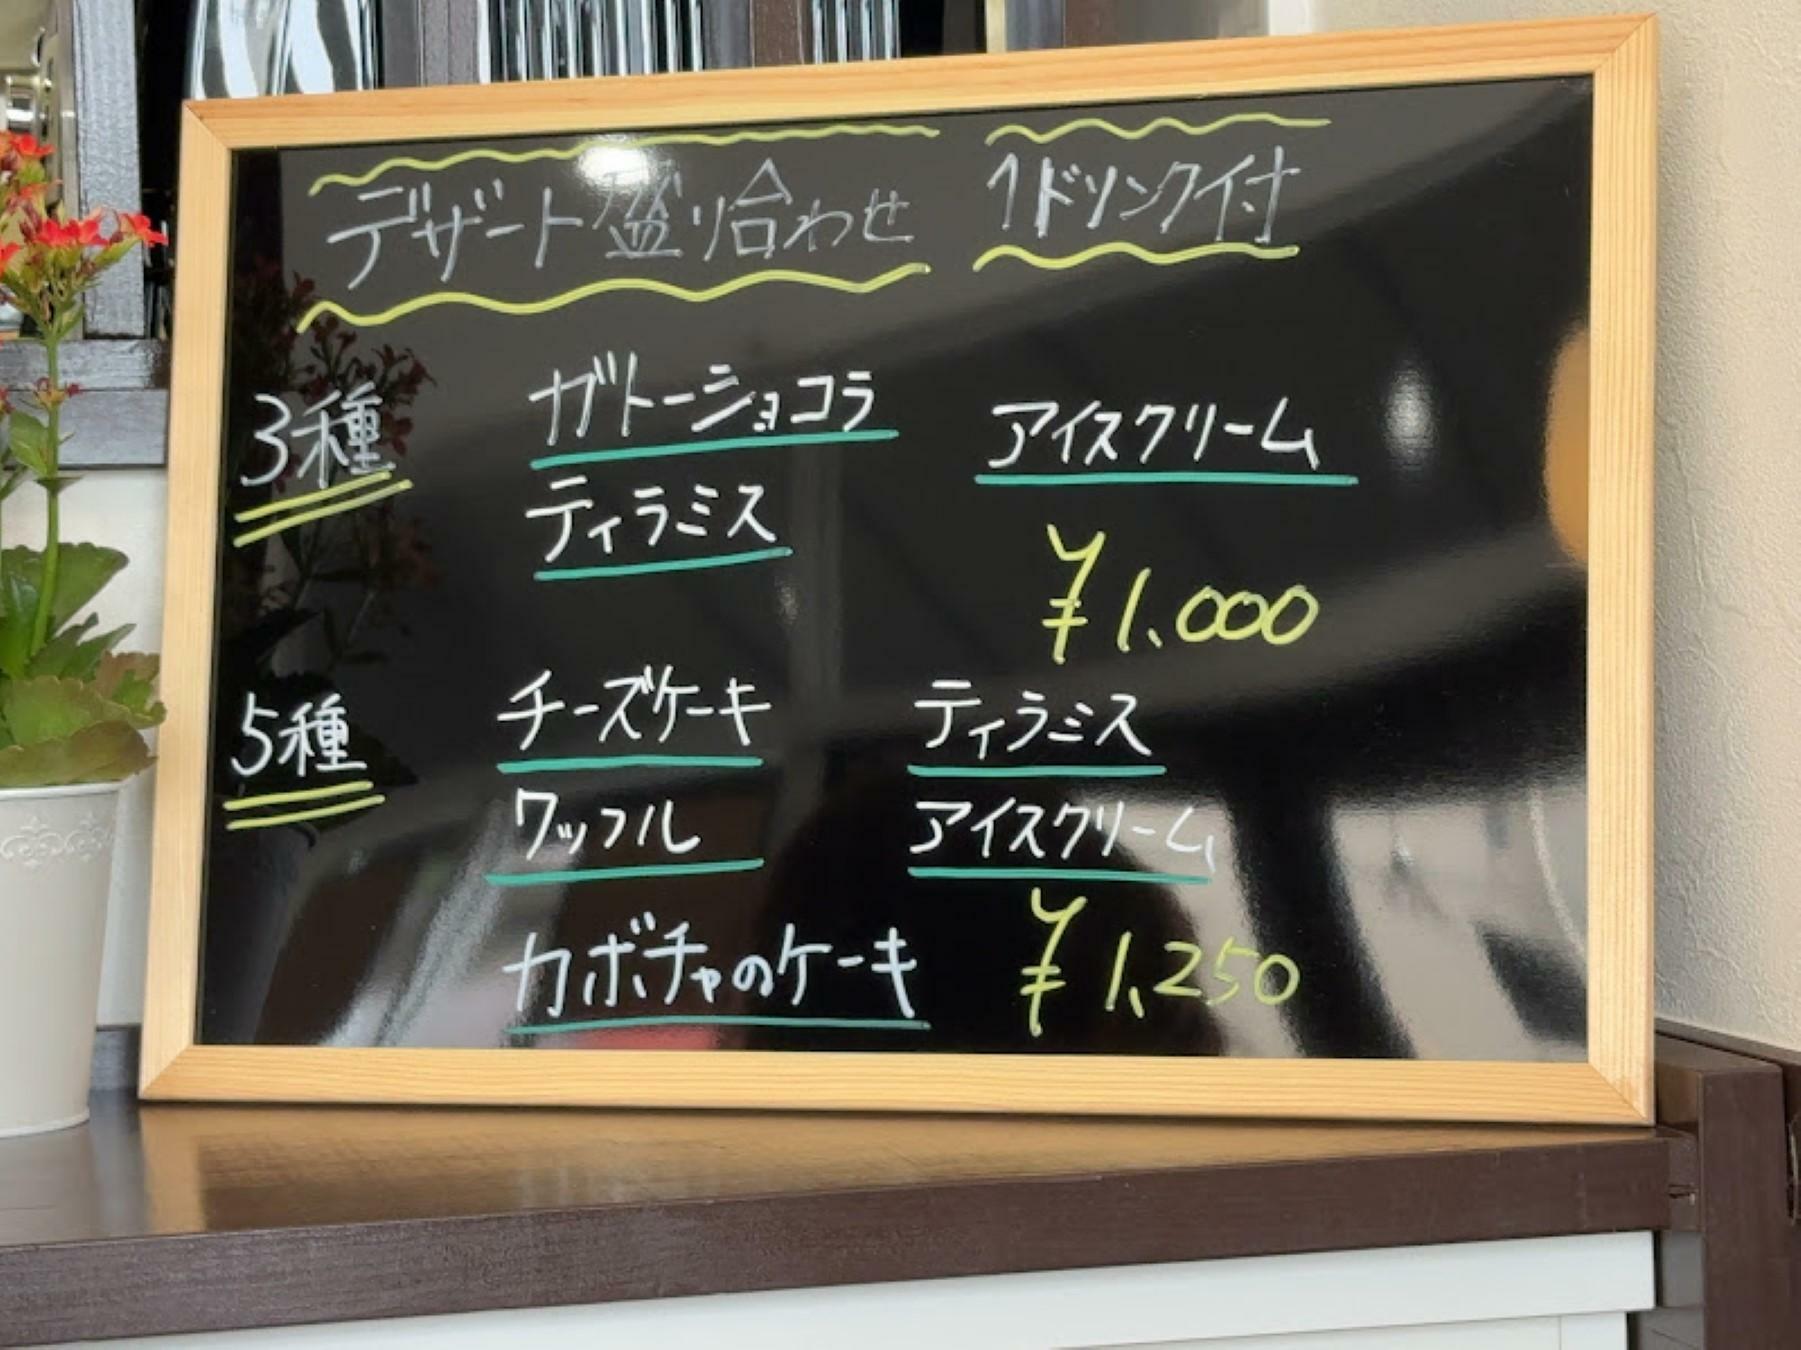 デザート盛り合わせ 1ドリンク付
3種 ガトーショコラ アイスクリーム
ティラミス
¥1.000
5種 チーズケーキ ティラミス
ワッフル アイスクリーム
カボチャのケーキ ¥1,250